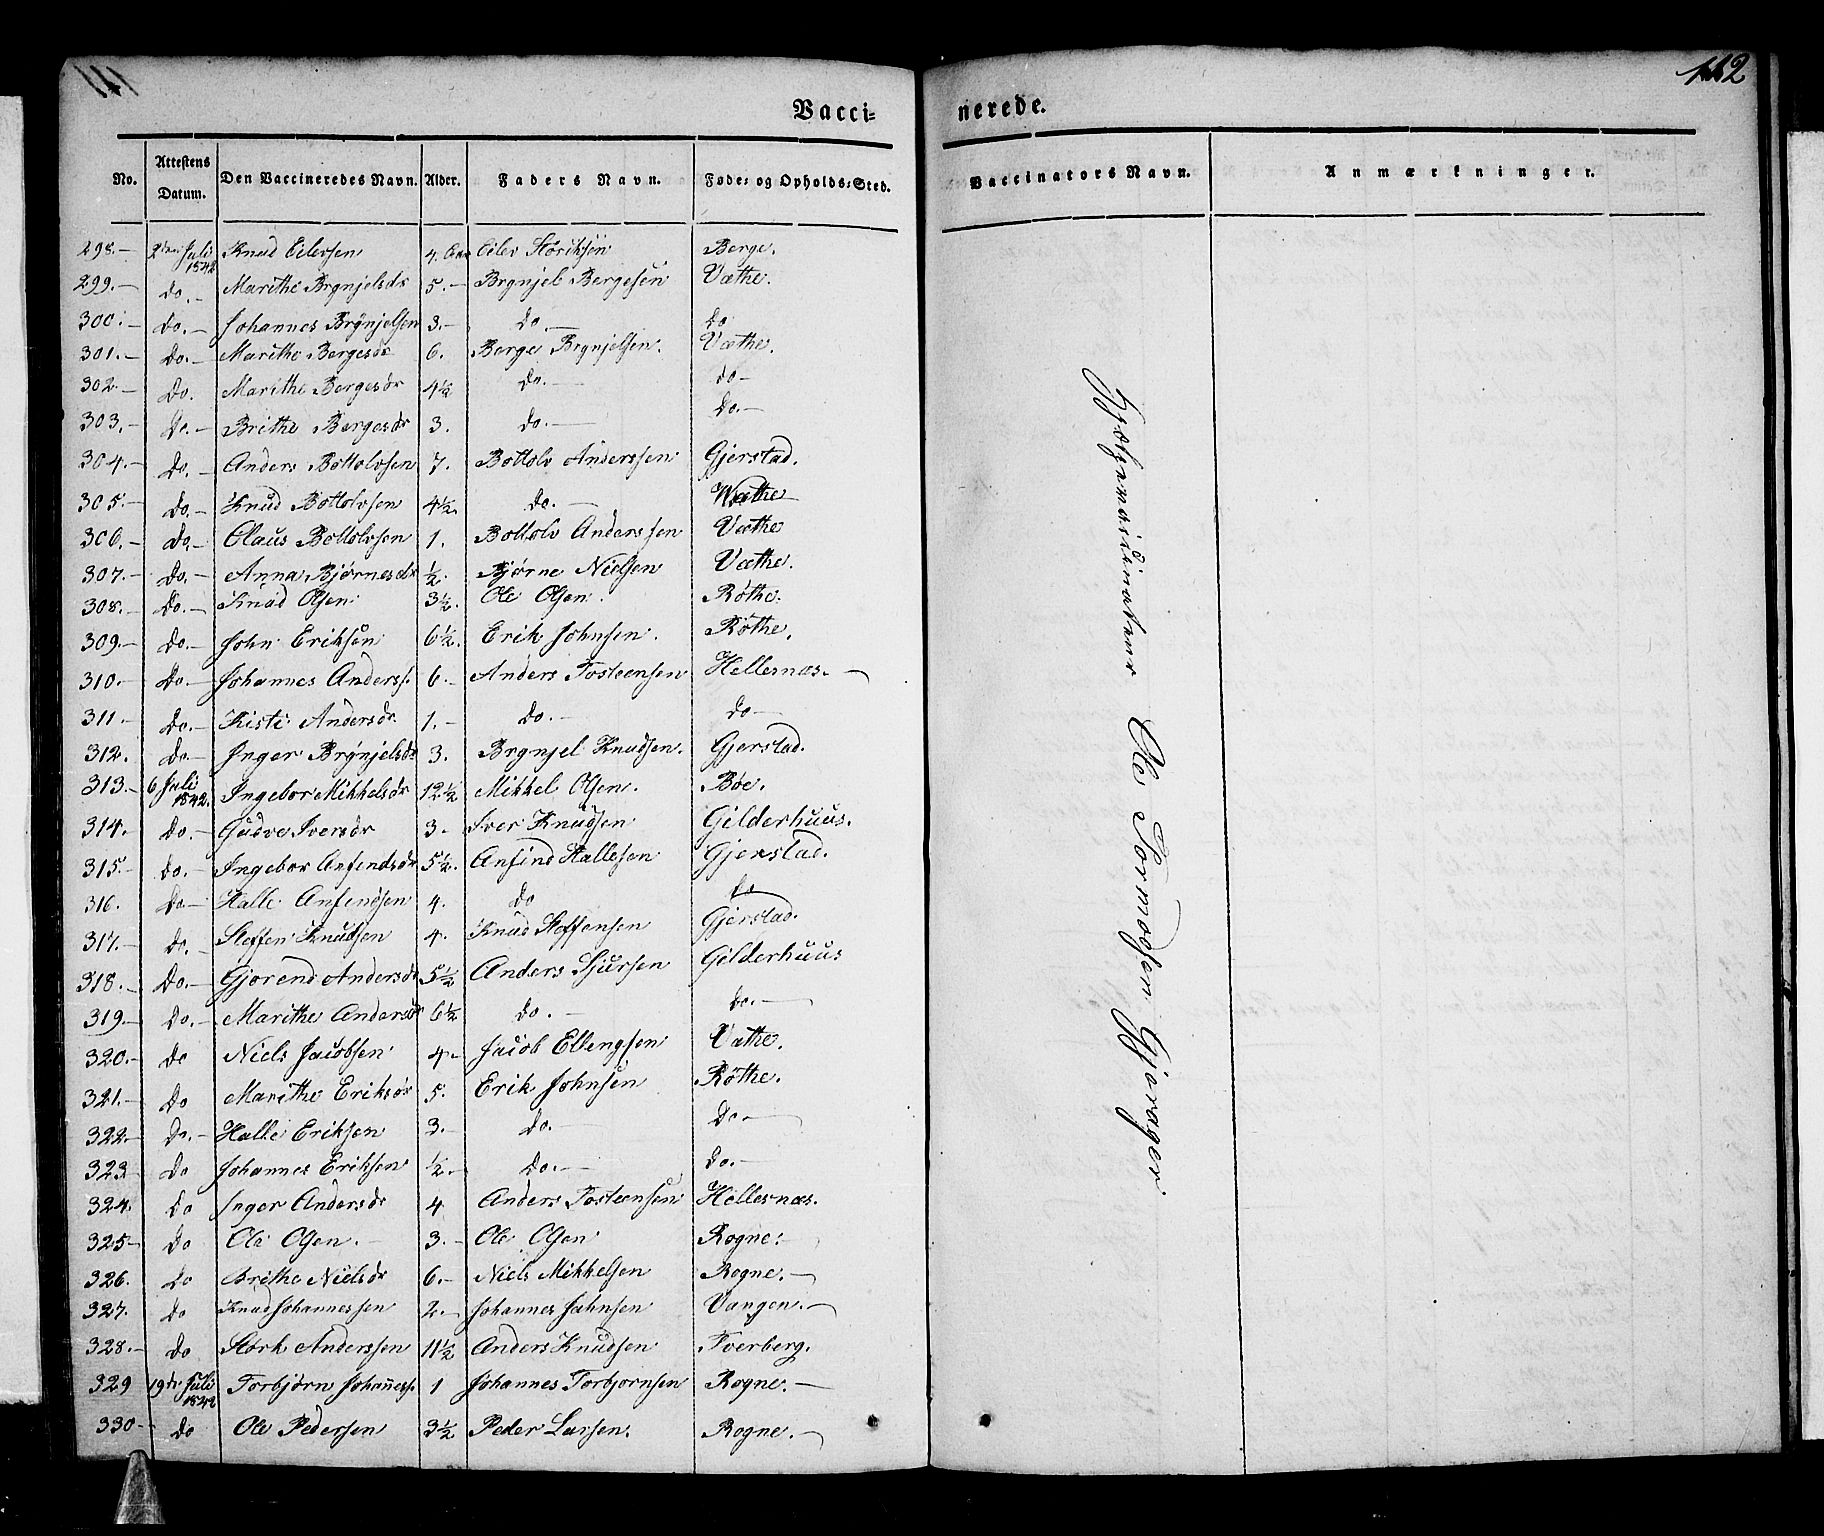 141
112
Vacci-
nerede.
No. Attestens Datum. Den Vaccineredes Navn. Alder. Faders Navn. Føde- og Opholds-Sted.
Vaccinators Navn. Anmærkninger.
298.- 2den Juli 1842 Knud Eilevsen 4. Eilev Storiksen Berge.
299.- do.- Marithe Brynjelsdr 5.- Brynjel Bergesen Væthe.
300.- do.- Johannes Brynjelsen 3.- do. do
301.- do.- Marithe Bergesdr 6. Berge Brynjelsen. Væthe.
302- do. Marithe Bergesdr 4½ do.- do-
303.- do.- Brithe Bergesdr 3. do.- do.-
304.- do. Anders Bottolvsen 7. Bottolv Anderssen Gjerstad.
305.- do.- Knud Bottolvsen 4½. do.- Væthe
306.- do.- Claus Bottolvsen 1. Bottolv Anderssen Væthe
307.- do.- Anna Bjørnesdr ½. Bjørne Nielsen Væthe.
308.- do.- Knud Olsen 3½. Ole Olsen. Røthe.
309.- do.- John Eriksen 6½. Erik Johnsen. Røthe.
310.- do- Johannes Anderss. 6.- Anders Tosteensen Hellesnæs.-
311.- do.- Kisti Andersdr 1.- do.- do-
312. do- Inger Brynjelsdr 3. Brynjel Knudsen. Gjerstad.
313.- 6 Juli 1842. Ingebor Mikkelsdr 12½ Mikkel Olsen. Bøe.
314. do.- Gudve Iversdr 3. Iver Knudsen Gilderhuus.
315.- do.- Ingebor Anfendsdr 5½. Anfind Hallesen Gjerstad.
316. do- Halle Anfendsen 4. do do
317.- do.- Steffen Knudsen 4. Knud Steffensen Gjerstad.
318.- do.- Gjørend Andersdr 5½ Anders Sjursen Gilderhuus
319.- do.- Marithe Andersdr 6½ do.- do.-
320.- do Niels Jacobsen 4- Jacob Ellengsen Væthe.
321.- do Marithe Eriksdr 5. Erik Johnsen Røthe.
322- do.- Halle Eriksen 3.- do.- do-
323 do Johannes Eriksen ½.- do.- do.-
324. do Inger Andersdr 4 Anders Tosteensen Hellesnæs.
325- do Ole Olsen.- 3.- Ole Olsen Rogne.-
326. do Brithe Nielsdr 6.- Niels Mikkelsen Rogne.-
327. do Knud Johannessen 2.- Johannes Johnsen Vangen.-
328.- do Størk Anderssen 11½ Anders Knudsen Tverberg.
329 19de Juli 1842 Torbjørn Johanness. 1 Johannes Torbjørnsen Rogne.-
330- do Ole Pedersen 3½ Peder Larsen. Rogne.-
Hjelpevaccinateur Ole Tormodsen Gjerager